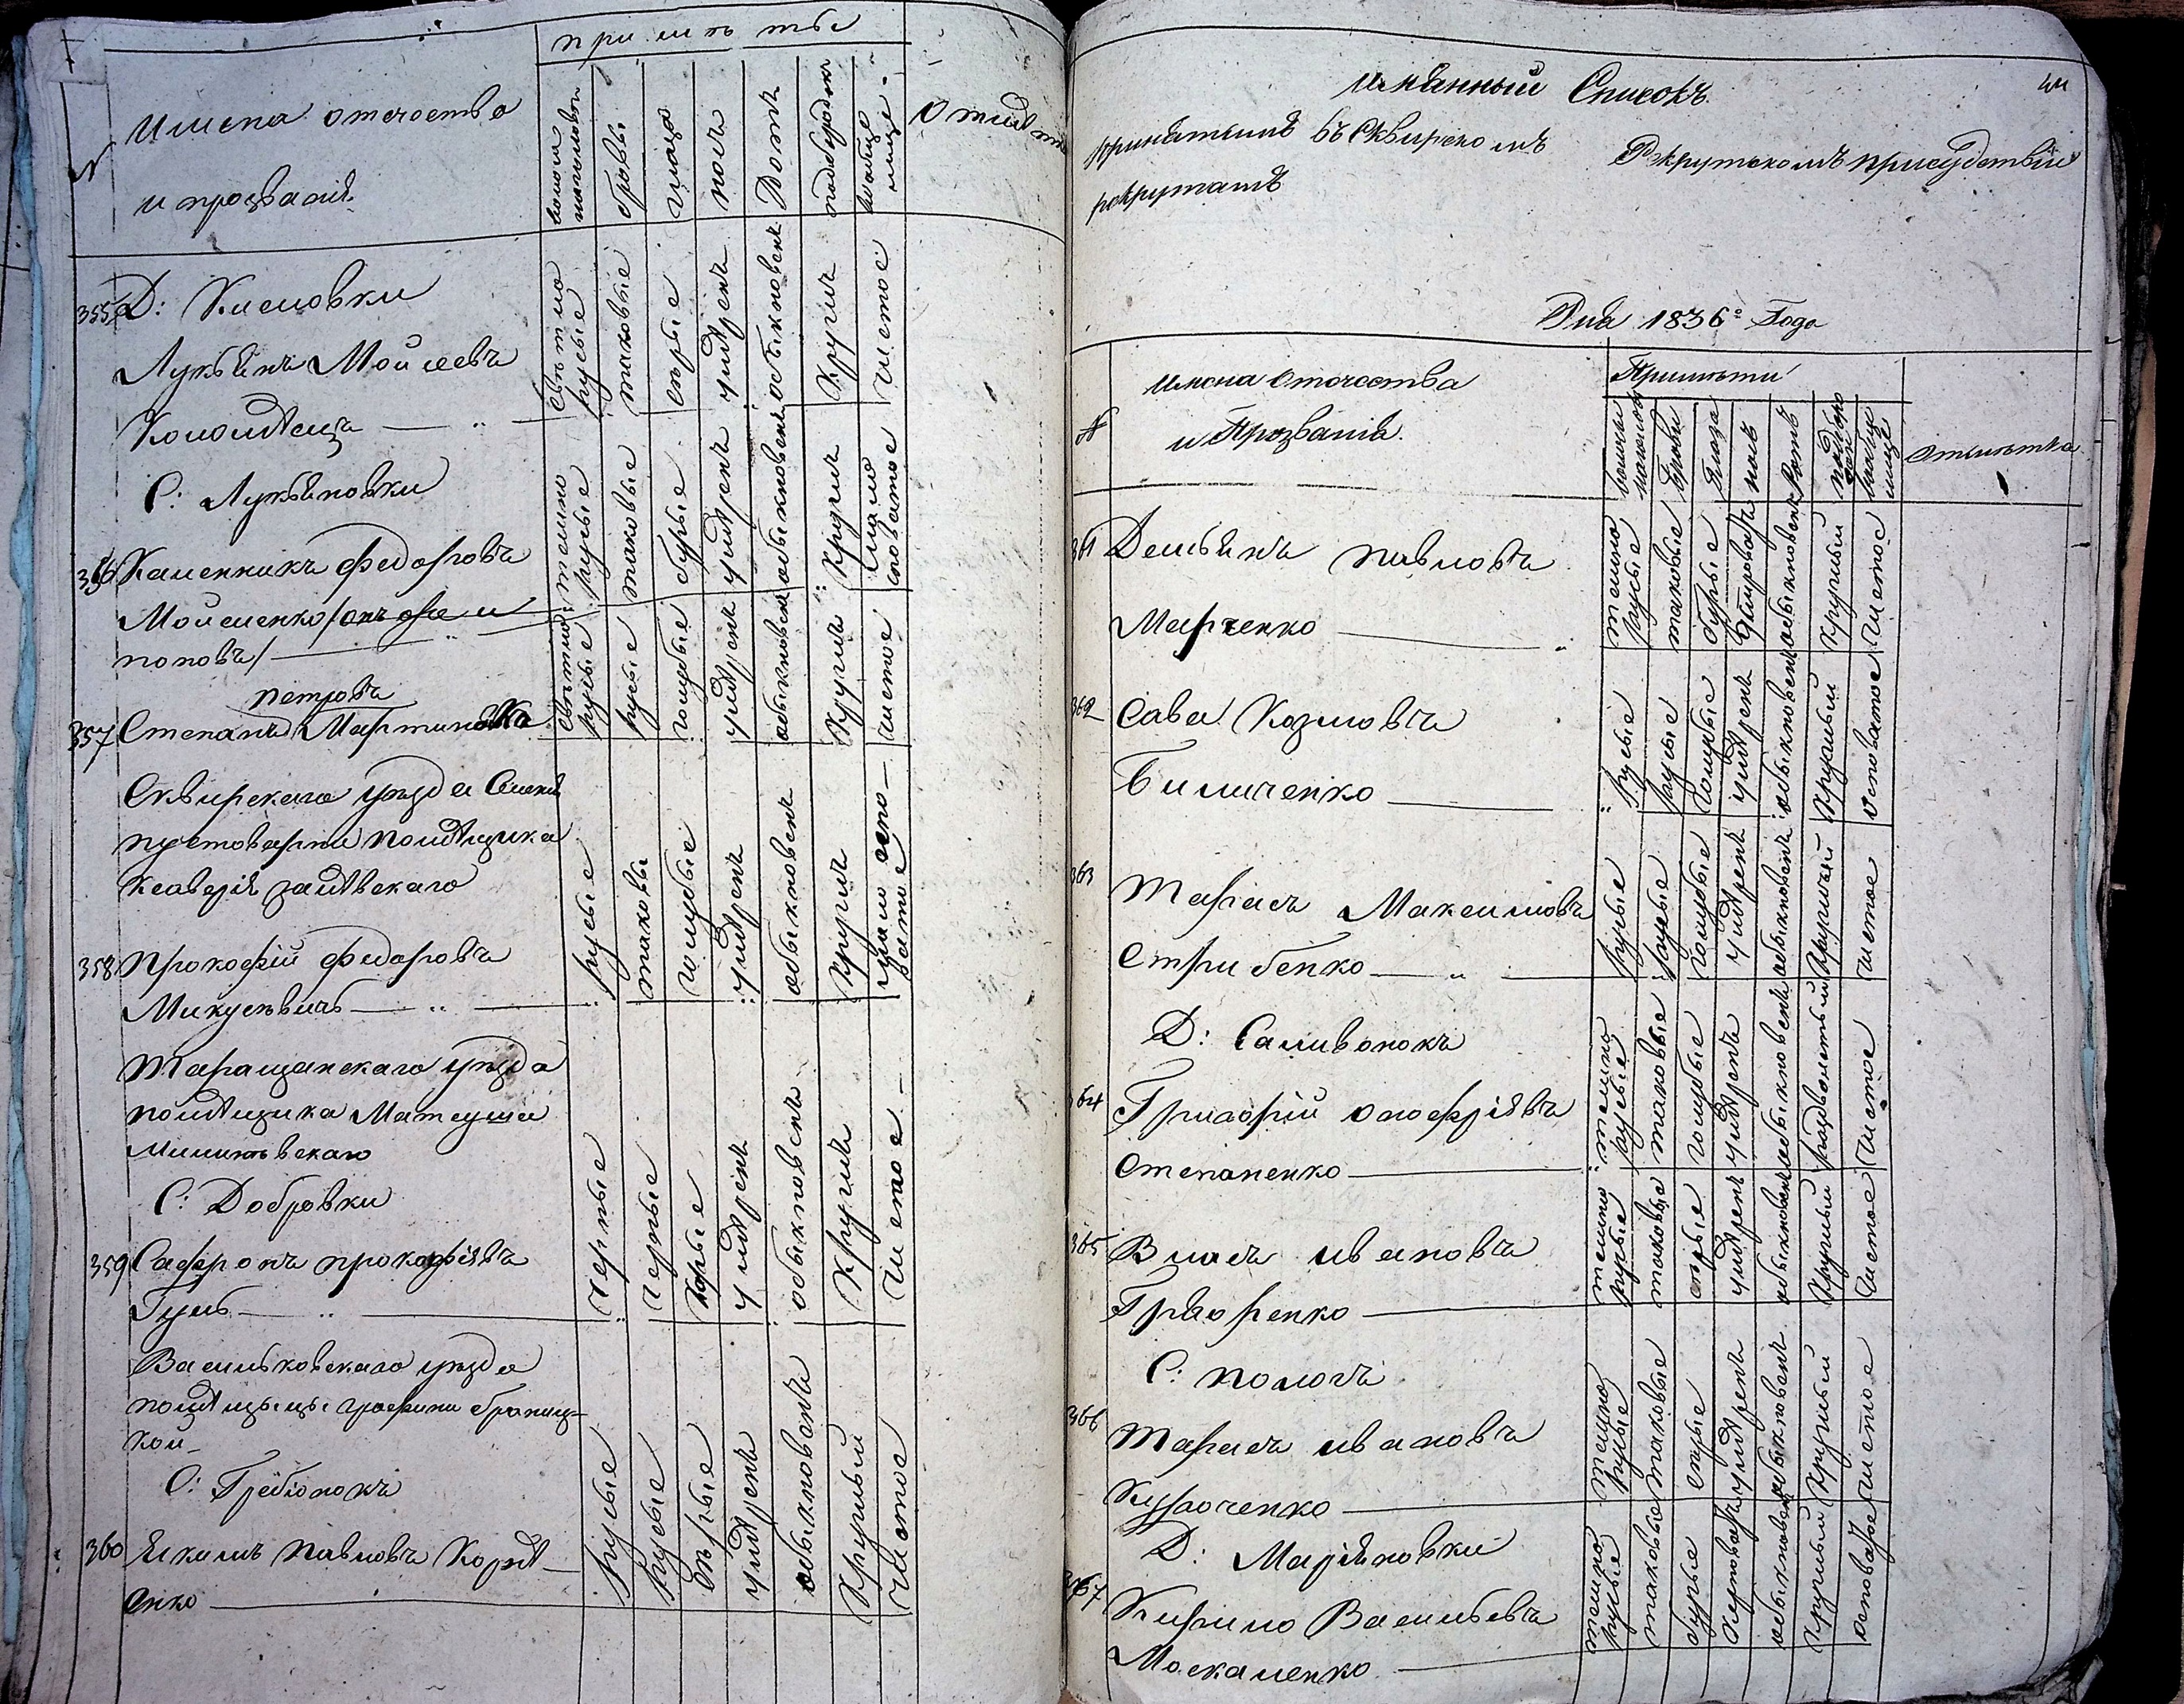 примѣты
№
Имена отечества
и прозванія
волоси
на головѣ
брови
глаза
носъ
ротъ
подбородокъ
вообще
лице
Отмѣтка
355 Д: Кисловки
Лукьянъ Мойсеевъ
Коломѣецъ
свѣтло
русые
таковые
сѣрые
умѣренъ
обыкновенъ
кругилъ
чистое
С: Лукьяновки
356 Каленникъ Федоровъ
Мойсеенко
поповъ/
темно
русые
таковые
бурые
умѣренъ
обыкновенъ
кругилъ
мало
споватое
Петровъ
357 Степанъ Мартин
свѣтло
русые
русые
голубые
умѣренъ
обыкновенъ
кругилъ
чистое
Сквирскаго уѣзда
пустоварни помѣщика
Ксаверія залѣвскаго
358 Прокофій Федоровъ
Микулѣвичъ
русые
таковы
голубые
умѣренъ
обыкновенъ
кругилъ
мало оспо-
ватое
Таращанскаго уѣзда
помѣщика Матеуша
С: Добровки
359 Сафронъ прокофіявъ
Гуль
черные
черные
карые
умѣренъ
обыкновенъ
кругилъ
чистое
Васильковскаго уѣзда
помѣщицы графини браниц-
кой
С: Гребіонокъ
360 Якимъ Павловъ Корнѣ-
енко
русые
русые
сѣрые
умѣренъ
обыкновенъ
круглый
чистое
Имянный Списокъ
принятымъ въ Сквирскомъ Рекрутскомъ присудствіи
рекрутамъ
Дня 1836го Года
№
Имена Отечества
и Прозванія
Примѣты
волоси
на головѣ
брови
глаза
носъ
ротъ
подборо
докъ
вообще
лице
Отмѣтка
361 Демьянъ Павловъ
Марченко
темно
русые
таковые
бурые
обыкновенъ
круглый
чистое
362 Сава Козмовъ
Биличенко
русые
русые
голубые
умѣренъ
обыкновенъ
круглый
осповатое
363 Тарасъ Максимовъ
Стрибенко
русые
русые
голубые
умѣренъ
обыкновенъ
круглый
чистое
Д: Саливонокъ
364 Григорій онофріявъ
Степаненко
темно
русые
таковые
голубые
умѣренъ
обыкновенъ
раздвоистый
чистое
365 Власъ ивановъ
Григоренко
темно
русые
таковые
сѣрые
умѣренъ
обыкновенъ
круглый
чистое
С: пологъ
366 Тарасъ ивановъ
Куроченко
темно
русые
таковые
сѣрые
умѣренъ
обыкновенъ
круглый
чистое
Д: Маріяновки
367 Кирило Васильевъ
Москаленко
темно
русые
таковые
бурые
обыкновенъ
круглый
осповатое